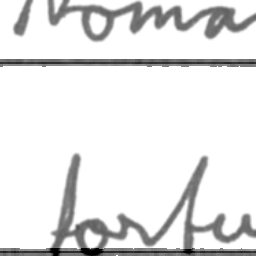 Noma
fortu